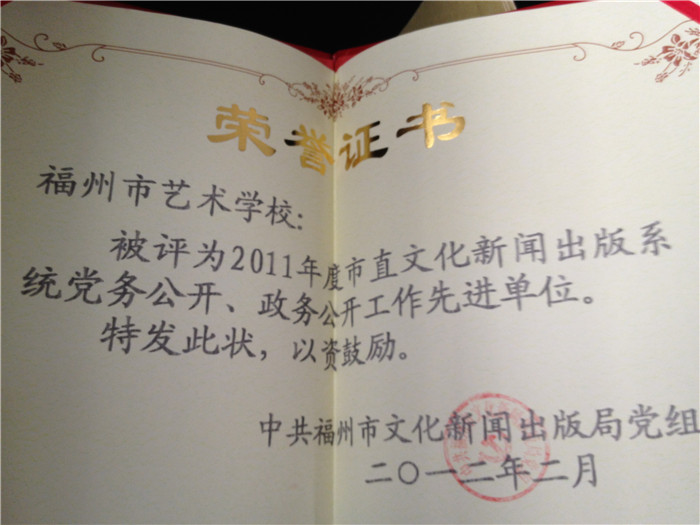 荣誉证书
福州市艺术学校:
被评为2011年度市直文化新闻出版系
统党务公开、政务公开工作先进单位。
特发此状，以资鼓励。
中共福州市文化新闻出版局党组
二〇一二年二月